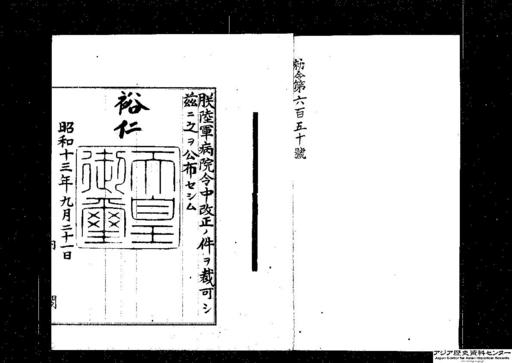 勅令第六百五十號
朕陸軍病院令中改正ノ件ヲ裁可シ
茲ニ之ヲ公布セシム
裕仁
天皇御璽
昭和十三年九月二十一日
内閣
アジア歴史資料センター
Japan Center for Asian Historical Records